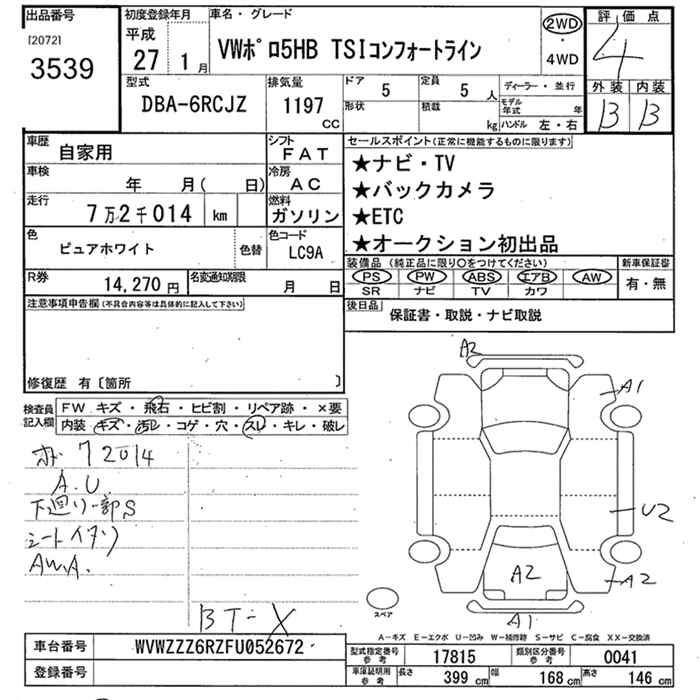 出品番号 初度登録年月 車名・グレード 評価点
[2072] 平成
3539 27 1月 VWポロ5HB TSIコンフォートライン 2WD・4WD 4
型式 排気量 ドア 5 定員 5人 ディーラー・並行 外装 内装
DBA-6RCJZ 1197 CC 形状 積載 kg モデル年式 年 B B
ハンドル 左・右
車歴 自家用 シフト FAT セールスポイント(正常に機能するものに限ります)
車検 年 月( 日) 冷房 AC ★ナビ・TV
走行 7万2千014 km 燃料 ガソリン ★バックカメラ
★ETC
色 ピュアホワイト 色替 色コード LC9A ★オークション初出品
装備品(純正品に限り○をつけてください) 新車保証書
R券 14,270円 名変通知期限 月 日 PS PW ABS エアB AW 有・無
SR ナビ TV カワ
注意事項申告欄(不具合内容等は具体的に記入して下さい) 後日品 保証書・取説・ナビ取説
修復歴 有〔箇所 〕
検査員記入欄 FW キズ・飛石・ヒビ割・リペア跡・×要
内装・キズ・汚レ・コゲ・穴・スレ・キレ・破レ
72014
A.U
下廻り一部S
シートイタン
AW.A.
BT-X
A2
A1
U2
A2
A2
A1
スペア
A-キズ E-エクボ U-凹み W-補修跡 S-サビ C-腐食 XX-交換済
車台番号 WVWZZZ6RZFU052672 型式指定番号 参考 17815 類別区分番号 参考 0041
登録番号 車庫証明用 参考 長さ 399 cm 幅 168 cm 高さ 146 cm